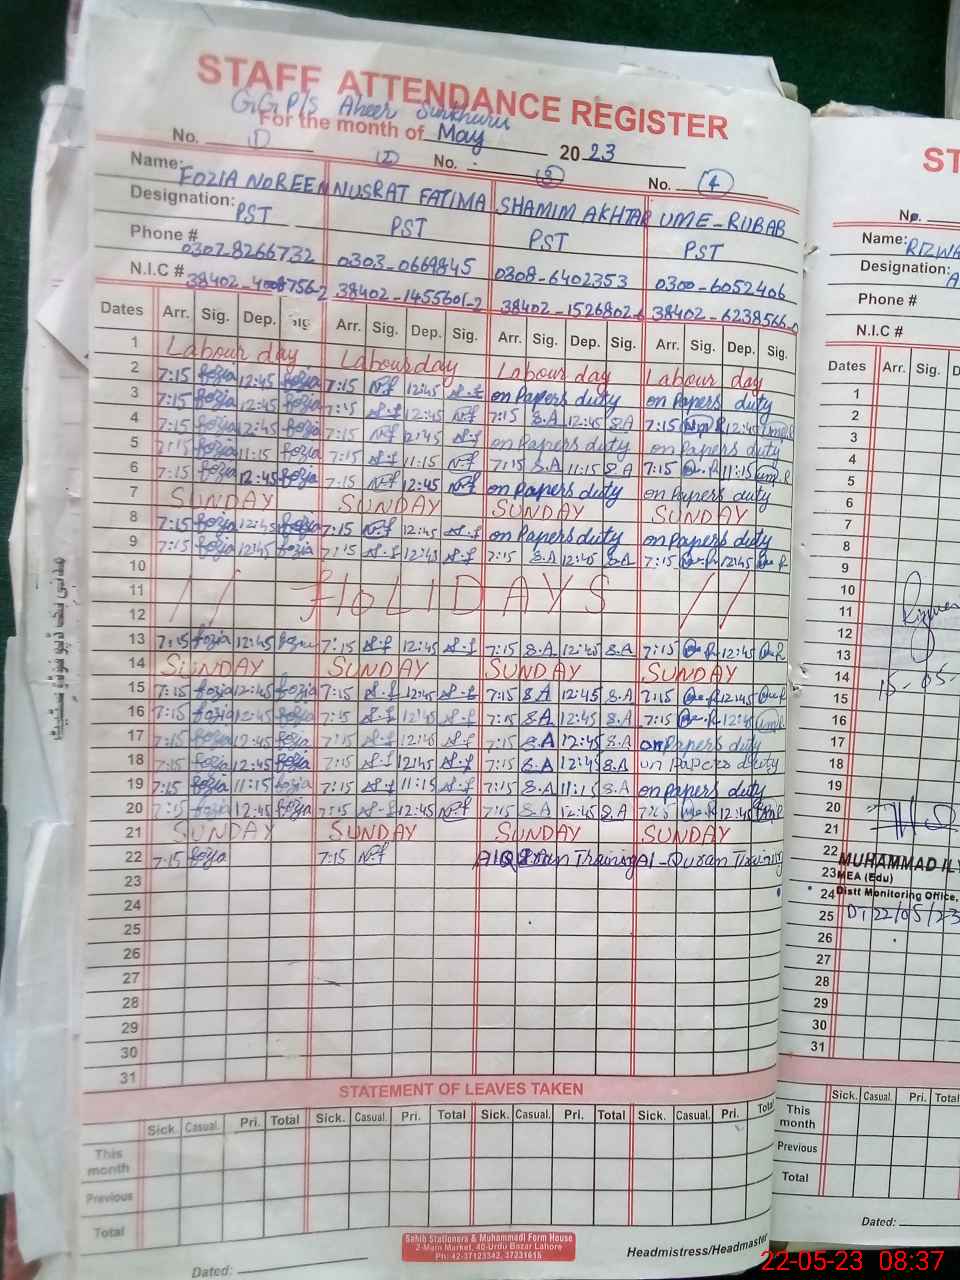 STAFF ATTENDANCE REGISTER
G.G.P/s Aheer Surkhuru
For the month of May 2023
No. (1) (2) No. (3) No. (4)
Name: FOZIA NOREEN NUSRAT FATIMA SHAMIM AKHTAR UME-RUBAB
Designation: PST PST PST PST
Phone # 0307-8266732 0303-0669845 0308-6402353 0300-6052406
N.I.C # 38402- 38402-1455601-2 38402-1526802-6 38402-6238566-0
Dates Arr. Sig. Dep. Sig. Arr. Sig. Dep. Sig. Arr. Sig. Dep. Sig. Arr. Sig. Dep. Sig.
1 Labour day Labour day Labour day Labour day
2 7:15 fozia 12:45 fozia 7:15 N.f 12:45 on Papers duty on Papers duty
3 7:15 fozia 12:45 fozia 7:15 12:45 N.f 7:15 S.A 12:45 S.A 7:15 12:45
4 7:15 fozia 12:45 fozia 7:15 N.f 12:45 on Papers duty on Papers duty
5 7:15 fozia 11:15 fozia 7:15 11:15 N.f 7:15 S.A 11:15 S.A 7:15 11:15
6 7:15 fozia 12:45 fozia 7:15 N.f 12:45 N.f on Papers duty on Papers duty
7 SUNDAY SUNDAY SUNDAY SUNDAY
8 7:15 fozia 12:45 fozia 7:15 N.f 12:45 on Papers duty on Papers duty
9 7:15 fozia 12:45 fozia 7:15 12:45 7:15 S.A 12:45 S.A 7:15 12:45
10
11 // HOLIDAYS //
12
13 7:15 fozia 12:45 7:15 12:45 7:15 S.A 12:45 S.A 7:15 12:45
14 SUNDAY SUNDAY SUNDAY SUNDAY
15 7:15 fozia 12:45 fozia 7:15 12:45 7:15 S.A 12:45 S.A 7:15 12:45
16 7:15 fozia 12:45 fozia 7:15 12:45 7:15 S.A 12:45 S.A 7:15 12:45
17 7:15 fozia 12:45 fozia 7:15 12:45 7:15 S.A 12:45 S.A on Papers duty
18 7:15 fozia 12:45 fozia 7:15 12:45 7:15 S.A 12:45 S.A on Papers duty
19 7:15 fozia 11:15 fozia 7:15 11:15 7:15 S.A 11:15 S.A on Papers duty
20 7:15 fozia 12:45 fozia 7:15 12:45 N.f 7:15 S.A 12:45 S.A 7:15 12:45
21 SUNDAY SUNDAY SUNDAY SUNDAY
22 7:15 fozia 7:15 N.f Training Al-Quran Training
23
24
25
26
27
28
29
30
31
STATEMENT OF LEAVES TAKEN
Sick. Casual. Pri. Total Sick. Casual. Pri. Total Sick. Casual. Pri. Total Sick. Casual. Pri. Total
This month
Previous
Total
Sahib Stationers & Muhammadi Form House
2-Main Market, 40-Urdu Bazar Lahore
Ph: 42-37123342, 37231616
Dated:
Headmistress/Headmaster
ST
No.
Name: RIZWA
Designation: A
Phone #
N.I.C #
Dates Arr. Sig. D
1
2
3
4
5
6
7
8
9
10
11
12
13
14
15 15-05-
16
17
18
19
20
21
22 MUHAMMAD ILY
23 MEA (Edu)
24 Distt Monitoring Office,
25 DT 22/05/23
26
27
28
29
30
31
Sick. Casual. Pri. Total
This month
Previous
Total
Dated:
22-05-23 08:37